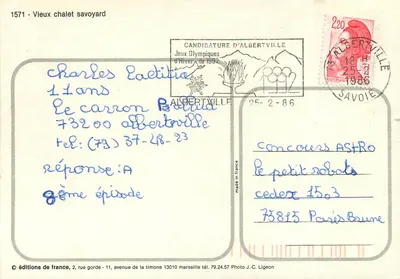 1571 - Vieux chalet savoyard
CANDIDATURE D'ALBERTVILLE
Jeux Olympiques
d'hiver de 1992
ALBERTVILLE 25-2-86
73 ALBERTVILLE
18 H
25-2
1986
SAVOIE
2,20
Charles Laetitia
11 ans
Le carron
73200 albertville
tel: (79) 37-48-23
réponse: A
8ème épisode
concours ASTRO
le petit robots
cedex 1503
75815 Paris Brune
made in france
© éditions de france, 2, rue gorde - 11, avenue de la timone 13010 marseille tél. 79.24.57 Photo J.-C. Ligeon